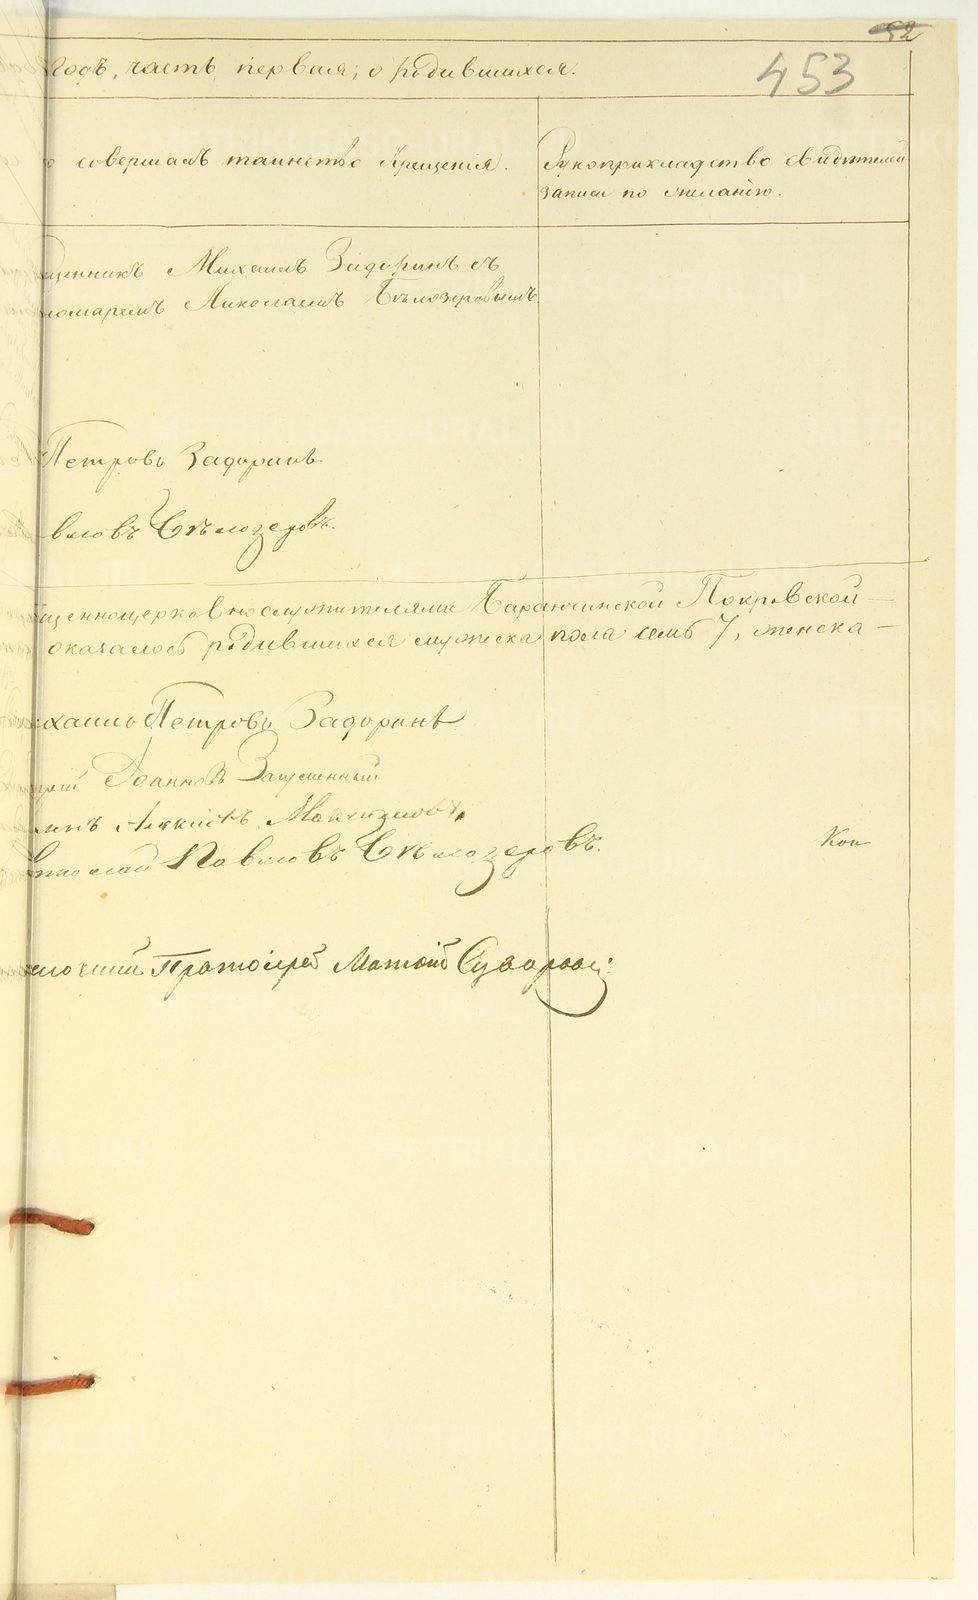 52
453
Годъ, часть первая, о родившихся.
совершалъ таинство крещенія.
Рукоприкладство свидѣтелей
записи по желанію.
щенникъ Михаилъ Задоринъ съ
номаремъ Николаемъ Бѣлозеровымъ
Петровъ Задоринъ
вловъ Бѣлозеровъ.
щенноцерковнослужителями Баранчинской Покровской
оказалось родившихся мужеска пола семь 7, женска
хаилъ Петровъ Задоринъ
Іоанновъ
Алексѣй
Николай Павловъ Бѣлозеровъ.
Коп
лочиный Протоіерей Матѳій Суворовъ
METRIKI.GASO-URAL.RU